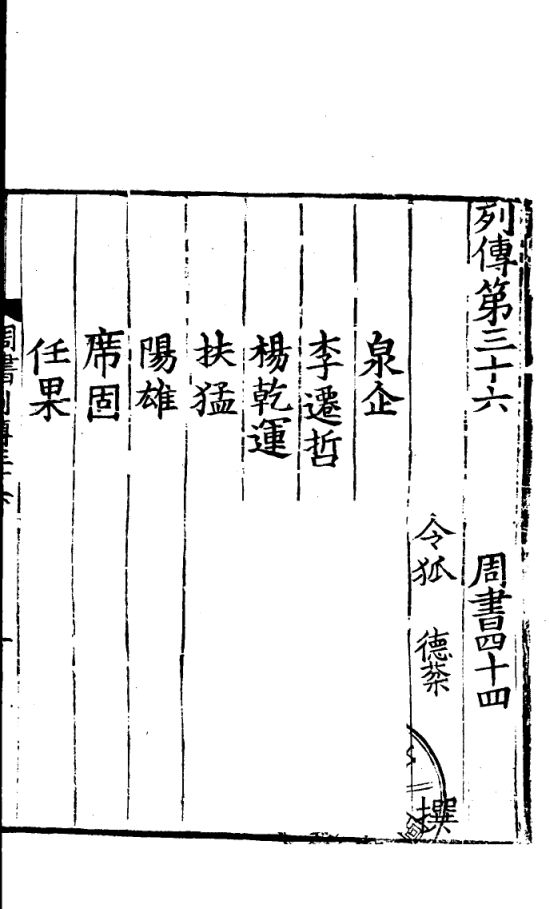 列傳第三十六 周書四十四
令狐 德棻 撰
泉企
李遷哲
楊乾運
扶猛
陽雄
席固
任果
周書列傳三十六 一